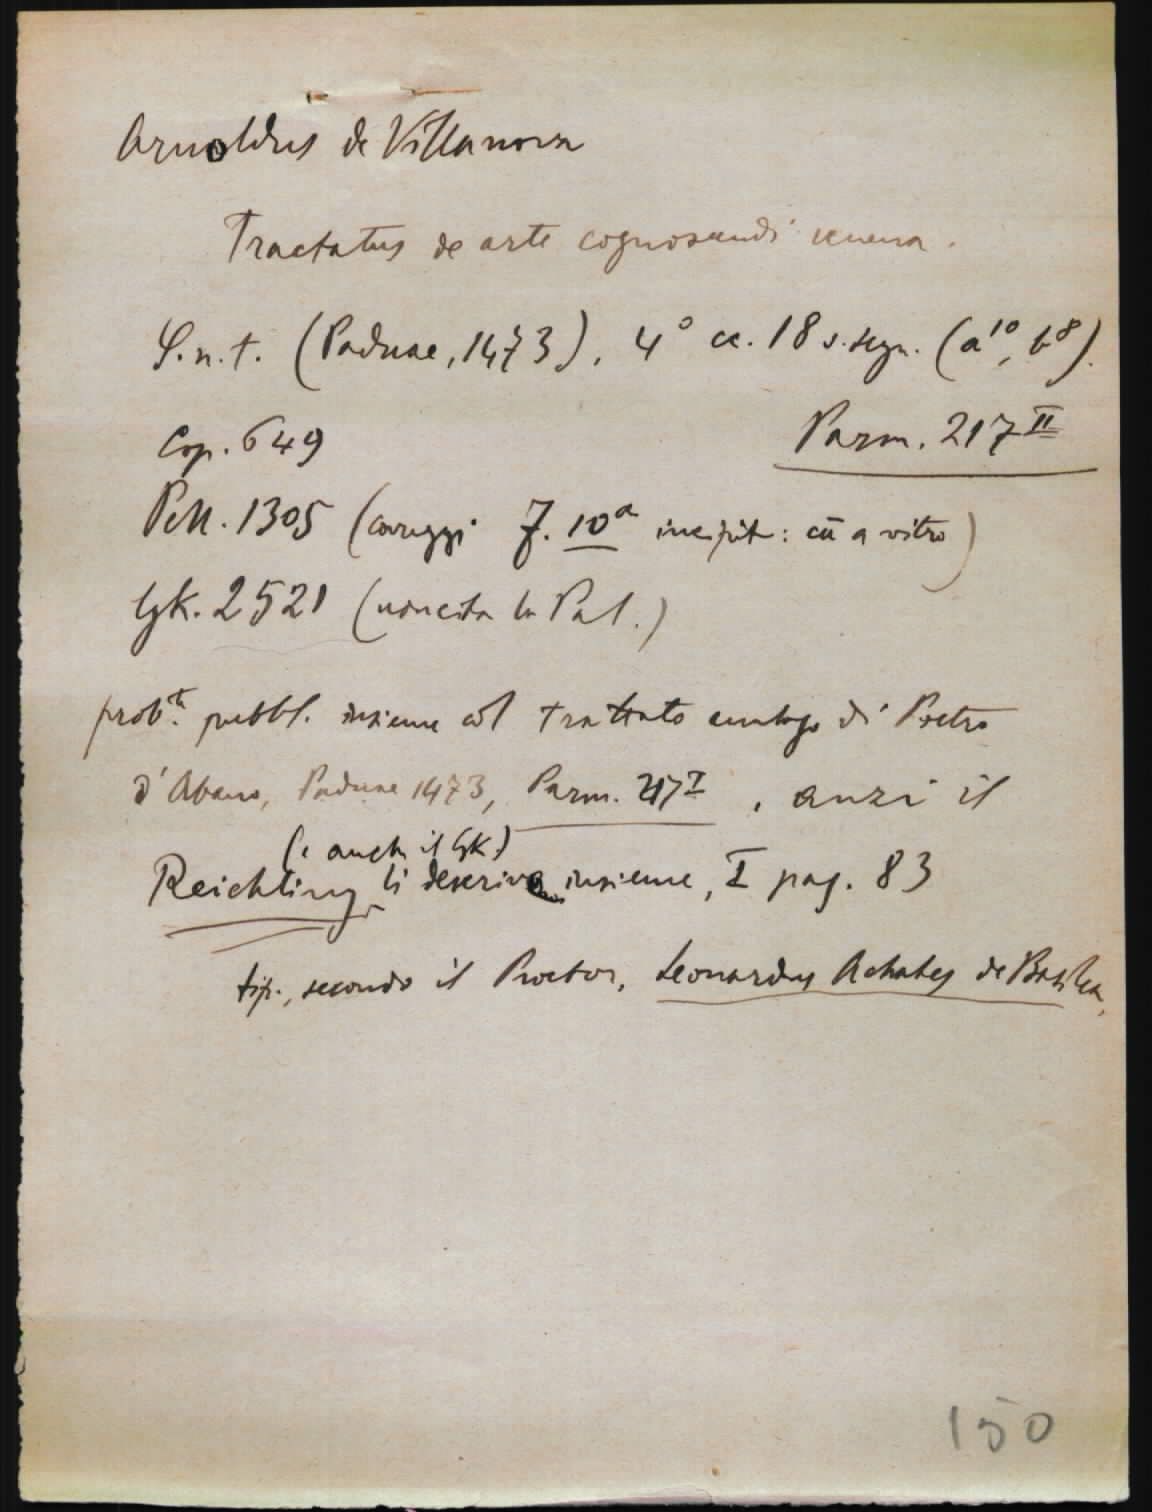 Arnoldus de Villanova
Tractatus de arte cognoscendi venena.
S.n.t. (Paduae, 1473), 4° cc. 18 s. segn. (a¹⁰, b⁸).
Cop. 649
Parm. 217 II
Pell. 1305 (correggi f. 10ª incipit: cū a vitro)
Gk. 2521 (non cita la Pal.)
prob.te pubbl. insieme col trattato analogo di Pietro
d'Abano, Paduae 1473, Parm. 217 I, anzi il
(e anche il Gk.)
Reichling li descrive insieme, I pag. 83
tip., secondo il Proctor, Leonardus Achates de Basilea,
150